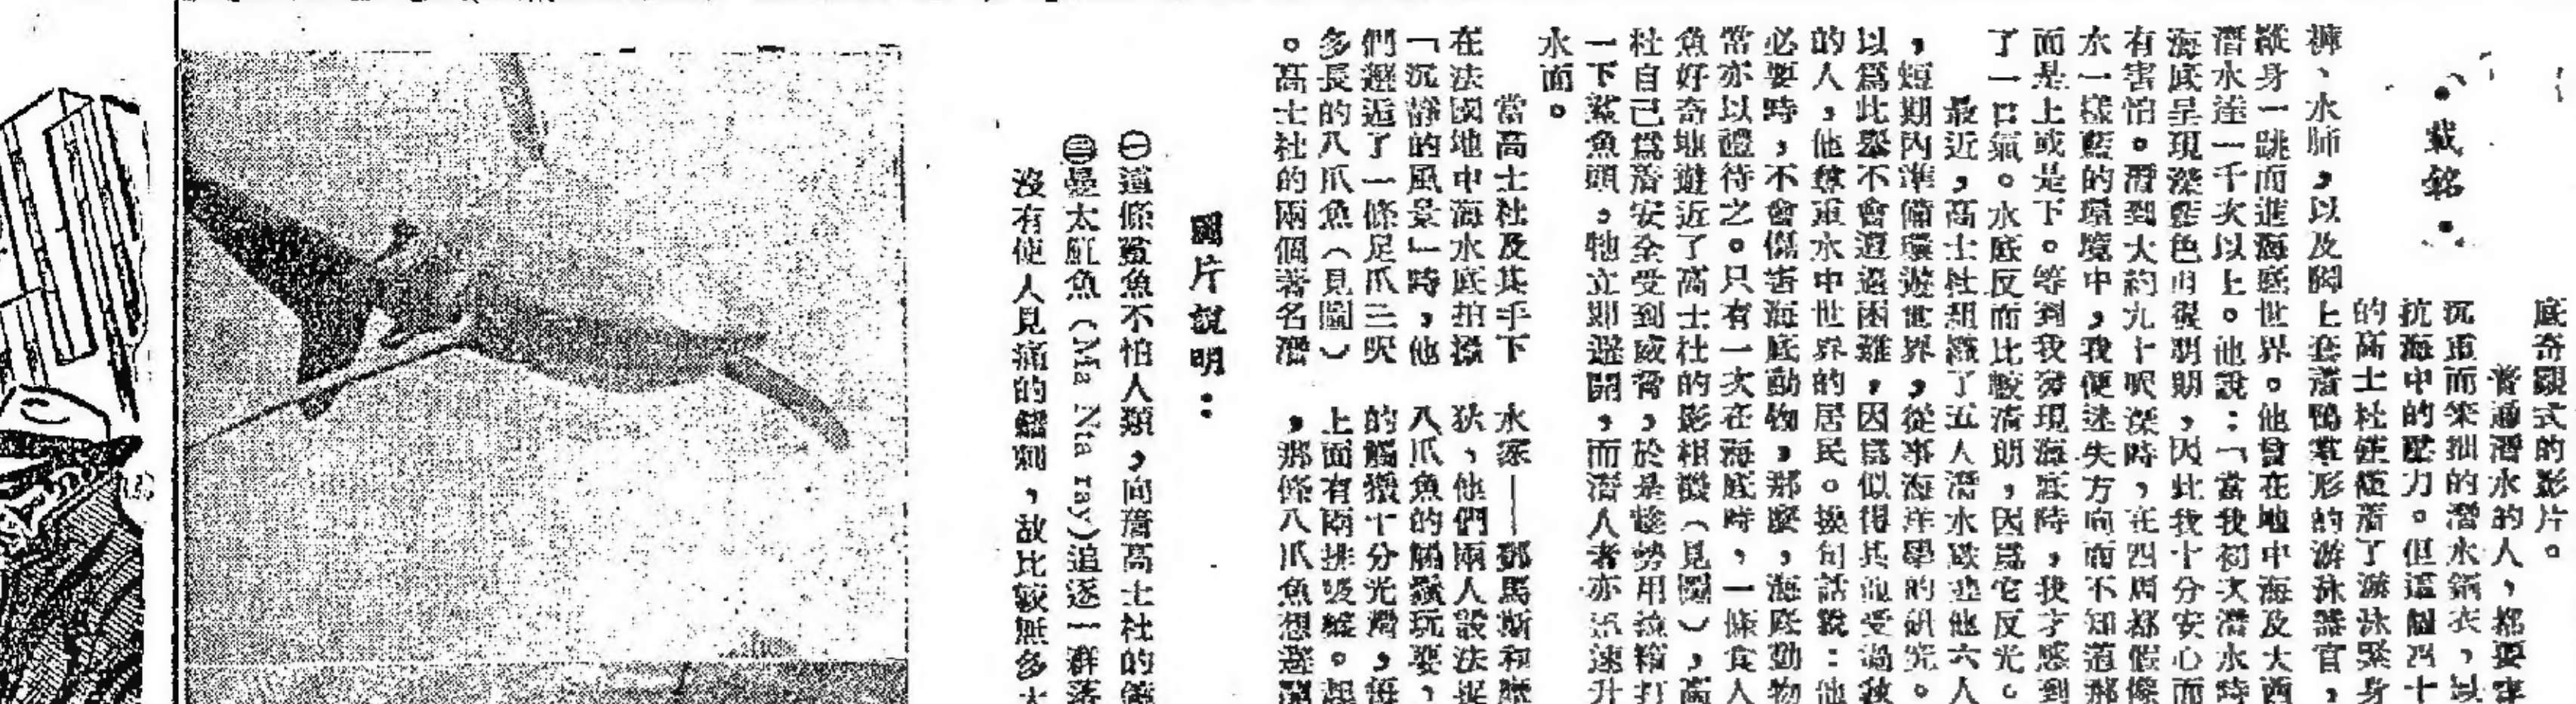 •戴銘•
底奇觀式的影片。
普通潛水的人，都要穿
沉重而笨拙的潛水銅衣，以
抗海中的壓力。但這個四十
的高士杜祗隨着了游泳緊身
褲、水肺，以及脚上套着鴨掌形的游泳器官，
縱身一跳而進海底世界。他曾在地中海及大西
潛水達一千次以上。他說：「當我初次潛水時
海底呈現深藍色而很明朗，因此我十分安心而
有害怕。潛到大約九十呎深時，在四周都假像
水一樣藍的環境中，我便迷失方向而不知道那
而是上或是下。等到我發現海底時，我才感到
了一口氣。水底反而比較清朗，因爲它反光。
最近，高士杜組織了五人潛水隊連他六人
，短期內準備環遊世界，從事海洋學的研究。
以爲此舉不會遭遇困難，因爲似得其他受過
的人，他尊重水中世界的居民。換句話說：他
必要時，不會傷害海底動物，那麼，海底動物
常亦以禮待之。只有一次在海底時，一條食人
魚好奇地遊近了高士杜的影相機（見圖），高
杜自己爲潛安全受到威脅，於是趁勢用拉箱打
一下鯊魚頭。牠立即避開，而潛人者亦迅速升
水面。
當高士杜及其手下
在法國地中海水底拍攝
「沉靜的風景」時，他
們邂逅了一條足爪三呎
多長的八爪魚（見圖）
。高士杜的兩個著名潛
水家——鄧馬斯和
狄，他們兩人設法捉
八爪魚的觸鬚玩耍，
的觸鬚十分光滑，每
上面有兩排吸盤。起
，那條八爪魚想避開
圖片說明：
㊀這條鯊魚不怕人類，向着高士杜的
㊂曼太魟魚（Ma Nta ray）追逐一群
沒有使人見痛的觸刺，故比較無多大